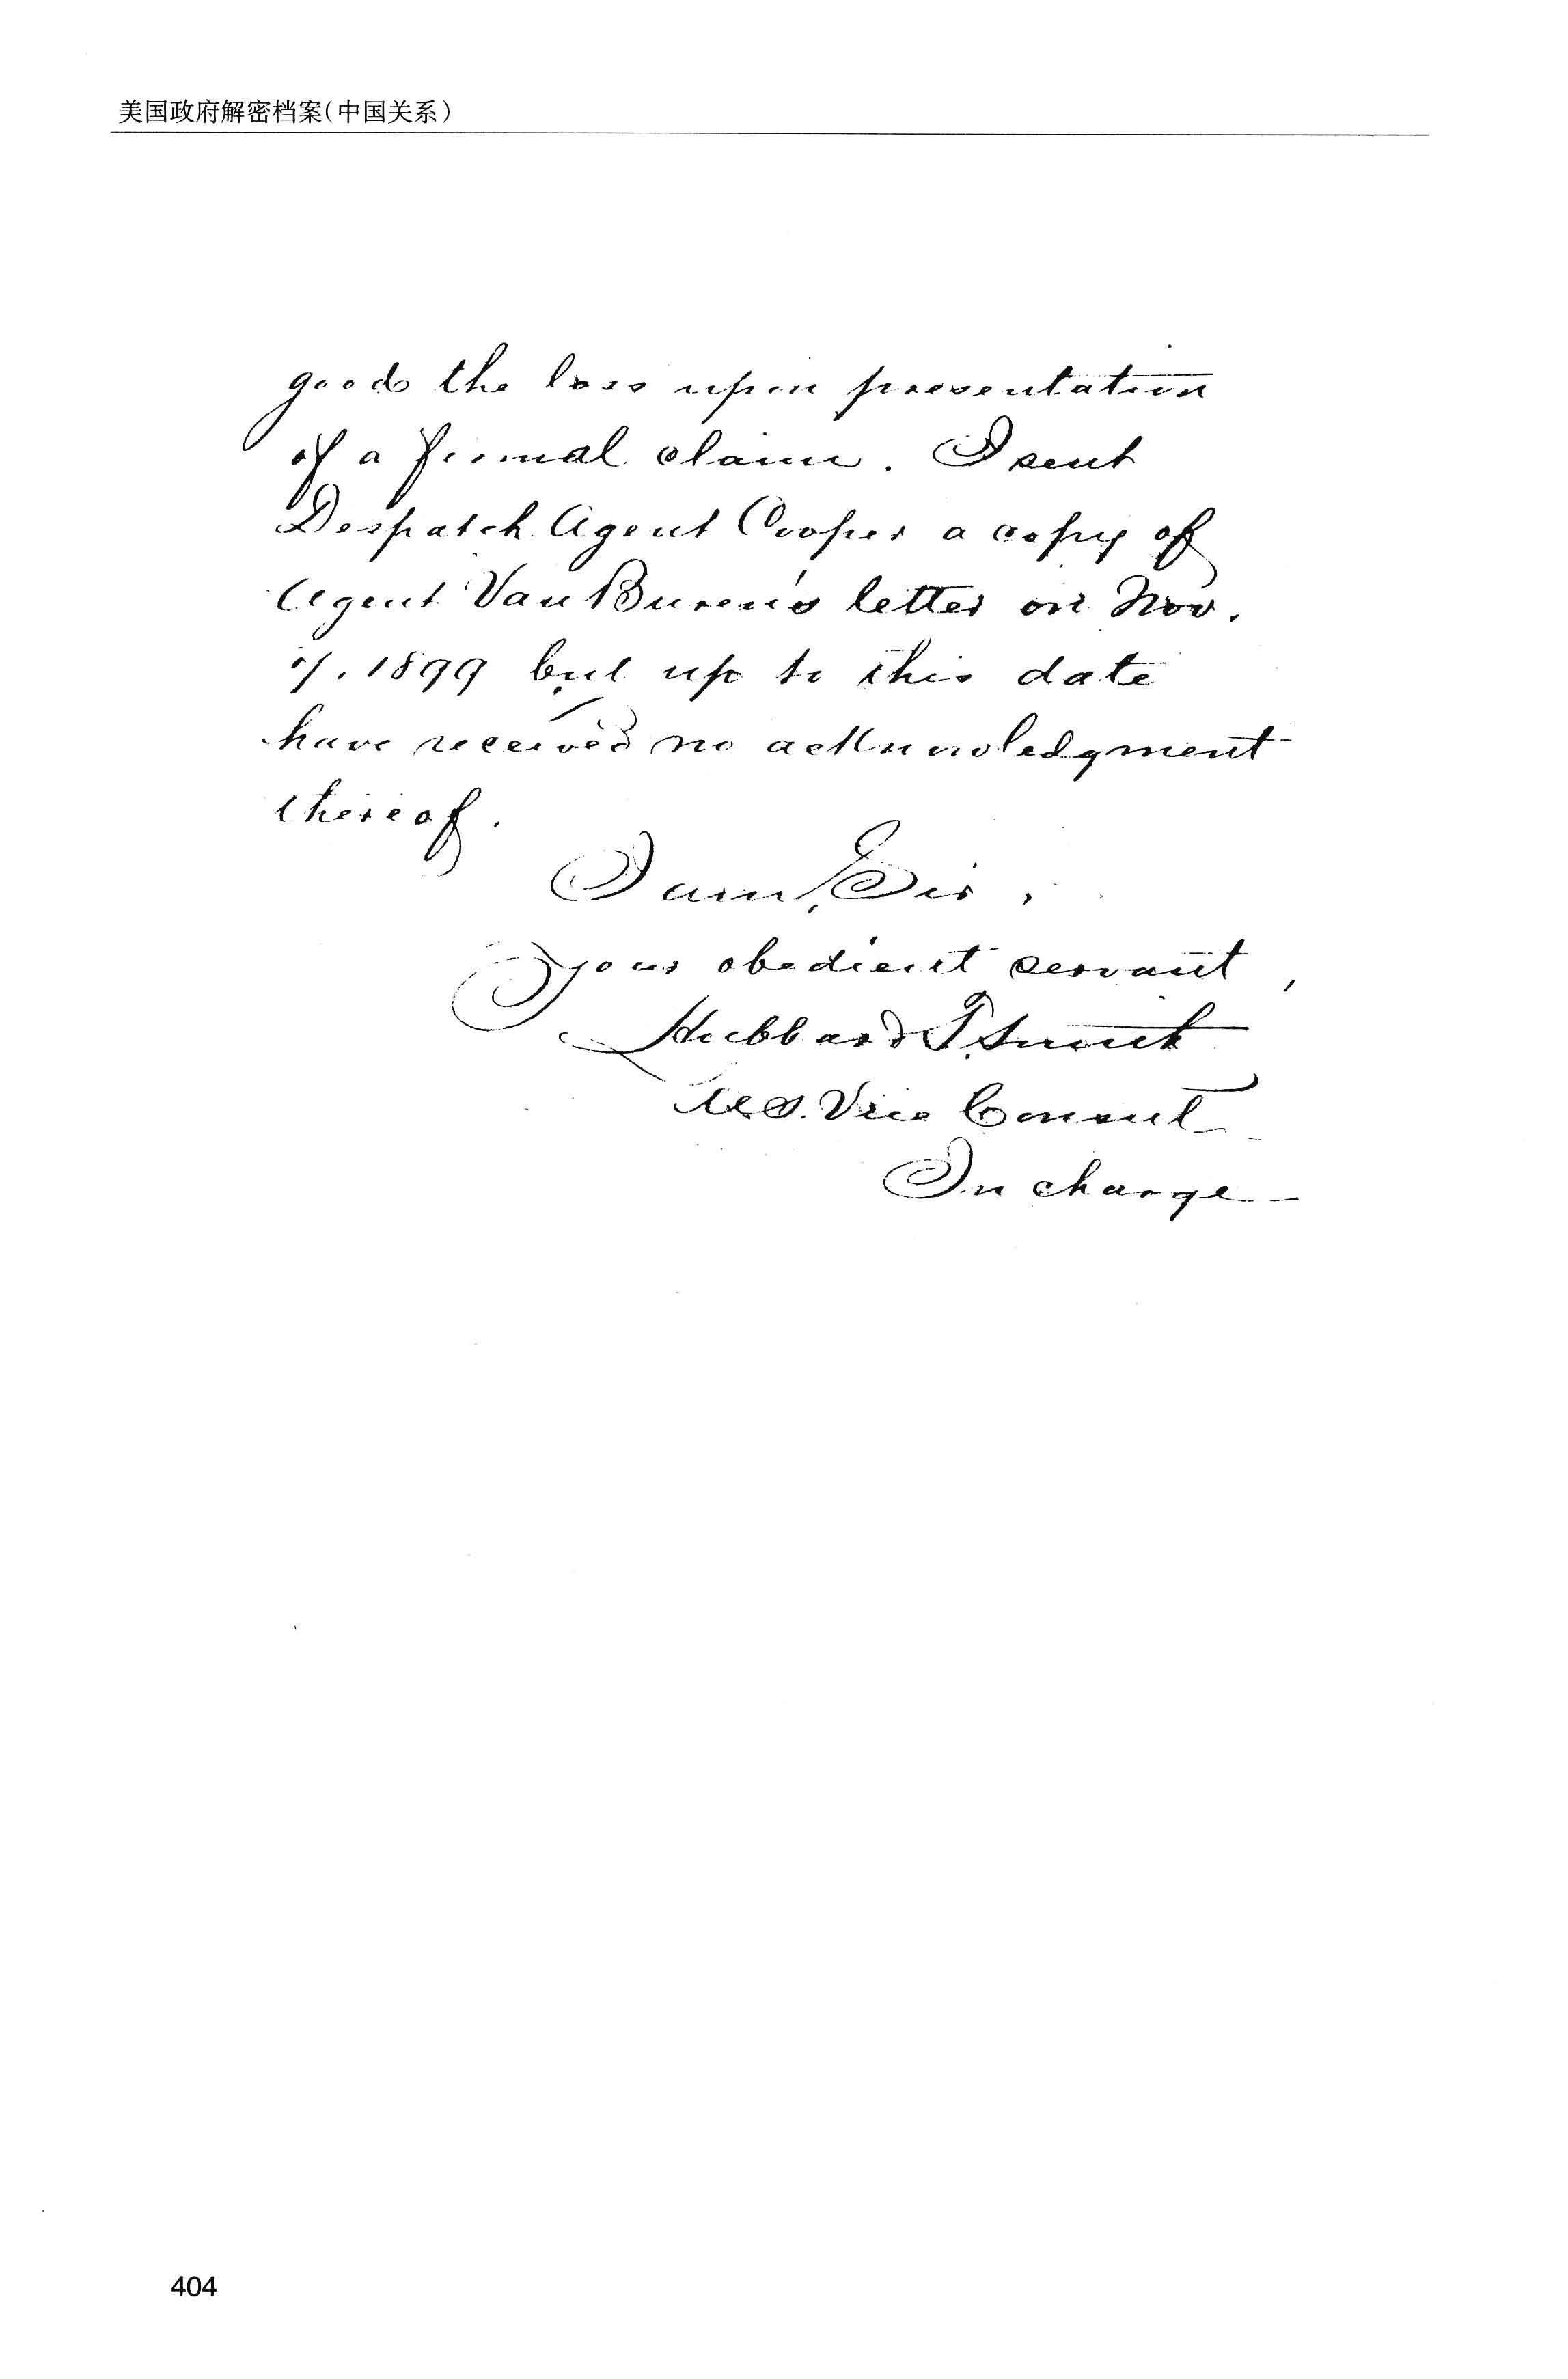 美国政府解密档案(中国关系)
good the loss upon presentation
of a formal claim. I sent
Despatch Agent Cooper a copy of
Agent Van Buren's letter on Nov.
1899 but up to this date
have received no acknowledgment
thereof.
I am, Sir,
Your obedient servant,
Hubbard T. Smith
U.S. Vice Consul
In charge
404